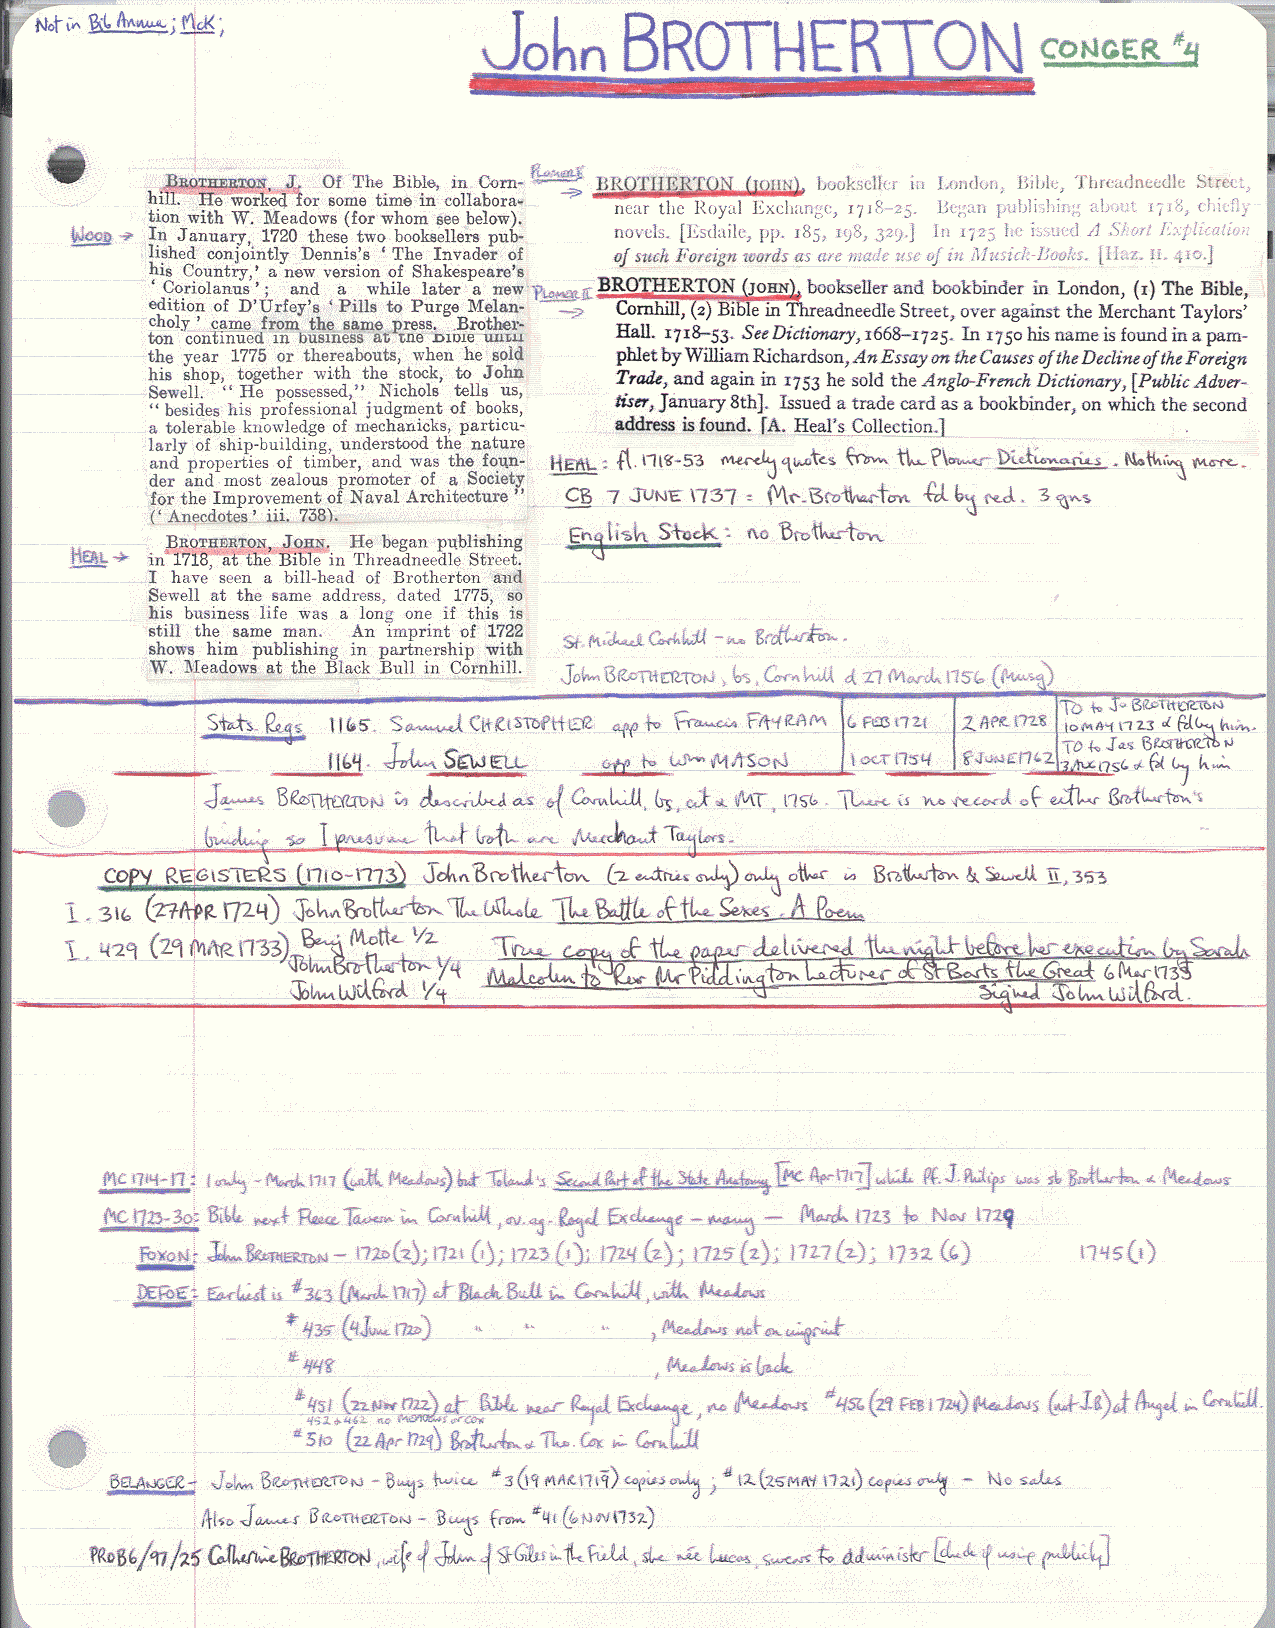 Not in Bib Annua; McK;
John BROTHERTON CONGER #4
WOOD →
BROTHERTON, J. Of The Bible, in Corn-
hill. He worked for some time in collabora-
tion with W. Meadows (for whom see below).
In January, 1720 these two booksellers pub-
lished conjointly Dennis's ' The Invader of
his Country,' a new version of Shakespeare's
' Coriolanus '; and a while later a new
edition of D'Urfey's ' Pills to Purge Melan-
choly ' came from the same press. Brother-
ton continued in business at the Bible until
the year 1775 or thereabouts, when he sold
his shop, together with the stock, to John
Sewell. " He possessed," Nichols tells us,
" besides his professional judgment of books,
a tolerable knowledge of mechanicks, particu-
larly of ship-building, understood the nature
and properties of timber, and was the foun-
der and most zealous promoter of a Society
for the Improvement of Naval Architecture "
(' Anecdotes ' iii. 738).
HEAL →
BROTHERTON, JOHN. He began publishing
in 1718, at the Bible in Threadneedle Street.
I have seen a bill-head of Brotherton and
Sewell at the same address, dated 1775, so
his business life was a long one if this is
still the same man. An imprint of 1722
shows him publishing in partnership with
W. Meadows at the Black Bull in Cornhill.
PLOMER →
BROTHERTON (JOHN), bookseller in London, Bible, Threadneedle Street,
near the Royal Exchange, 1718-25. Began publishing about 1718, chiefly
novels. [Esdaile, pp. 185, 198, 329.] In 1725 he issued A Short Explication
of such Foreign words as are made use of in Musick-Books. [Haz. II. 410.]
PLOMER II →
BROTHERTON (JOHN), bookseller and bookbinder in London, (1) The Bible,
Cornhill, (2) Bible in Threadneedle Street, over against the Merchant Taylors'
Hall. 1718-53. See Dictionary, 1668-1725. In 1750 his name is found in a pam-
phlet by William Richardson, An Essay on the Causes of the Decline of the Foreign
Trade, and again in 1753 he sold the Anglo-French Dictionary, [Public Adver-
tiser, January 8th]. Issued a trade card as a bookbinder, on which the second
address is found. [A. Heal's Collection.]
HEAL: fl. 1718-53 merely quotes from the Plomer Dictionaries. Nothing more.
CB 7 JUNE 1737 = Mr. Brotherton fd by red. 3 gns
English Stock: no Brotherton
St. Michael Cornhill - no Brotherton.
John BROTHERTON, bs, Cornhill d 27 March 1756 (Musg)
Stats. Regs 1165. Samuel CHRISTOPHER app to Francis FAYRAM 6 FEB 1721 2 APR 1728 TO to Jo BROTHERTON
10 MAY 1723 & fd by him.
1164. John SEWELL app to Wm MASON 1 OCT 1754 8 JUNE 1762 TO to Jas BROTHERTON
3 AUG 1756 & fd by him
James BROTHERTON is described as of Cornhill, bs, cit & MT, 1756. There is no record of either Brotherton's
binding so I presume that both are Merchant Taylors.
COPY REGISTERS (1710-1773) John Brotherton (2 entries only) only other is Brotherton & Sewell II, 353
I. 316 (27 APR 1724) John Brotherton The Whole The Battle of the Sexes. A Poem
I. 429 (29 MAR 1733) Benj Motte 1/2
John Brotherton 1/4
John Wilford 1/4
True copy of the paper delivered the night before her execution by Sarah
Malcolm to Rev Mr Piddington Lecturer of St Barts the Great 6 Mar 1733
Signed John Wilford.
MC 1714-17: 1 only - March 1717 (with Meadows) but Toland's Second Part of the State Anatomy [MC Apr 1717] while Pf. J. Philips was sb Brotherton & Meadows
MC 1723-30: Bible next Fleece Tavern in Cornhill, ov. ag. Royal Exchange - many - March 1723 to Nov 1729
FOXON: John BROTHERTON - 1720 (2); 1721 (1); 1723 (1); 1724 (2); 1725 (2); 1727 (2); 1732 (6) 1745 (1)
DEFOE: Earliest is #363 (March 1717) at Black Bull in Cornhill, with Meadows
#435 (4 June 1720) " " " , Meadows not on imprint
#448 , Meadows is back
#451 (22 Nov 1722) at Bible near Royal Exchange, no Meadows #456 (29 FEB 1724) Meadows (not J.B) at Angel in Cornhill.
452 & 462 no MEADOWS or COX
#510 (22 Apr 1729) Brotherton & Tho. Cox in Cornhill
BELANGER - John BROTHERTON - Buys twice #3 (19 MAR 1719) copies only; #12 (25 MAY 1721) copies only - No sales
Also James BROTHERTON - Buys from #41 (6 NOV 1732)
PROB6/97/25 Catherine BROTHERTON, wife of John of St Giles in the Field, she née Lucas, swears to administer [check if using publicly]